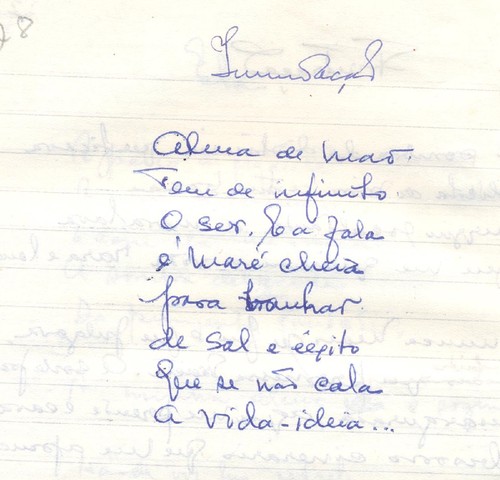 Inundação
Alma de mar.
Tem de infinito.
O ser. E a fala
é maré cheia
para banhar
de sal e
Que se não cala
A vida-ideia...